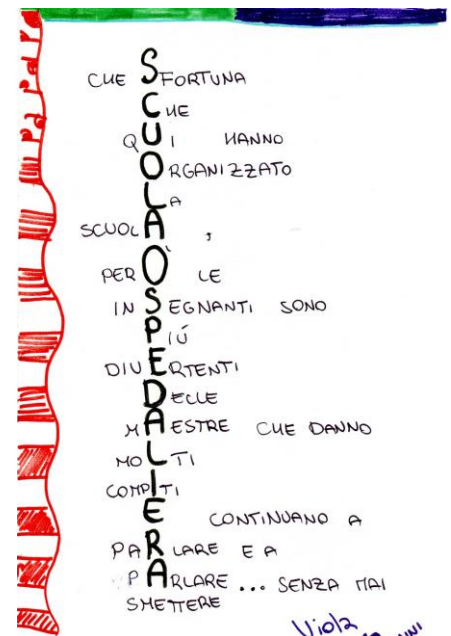 CHE SFORTUNA
CHE
QUI HANNO
ORGANIZZATO
LA
SCUOLA,
PERÒ LE
INSEGNANTI SONO
PIÚ
DIVERTENTI
DELLE
MAESTRE CHE DANNO
MOLTI
COMPITI
E CONTINUANO A
PARLARE E A
PARLARE... SENZA MAI
SMETTERE
Viola